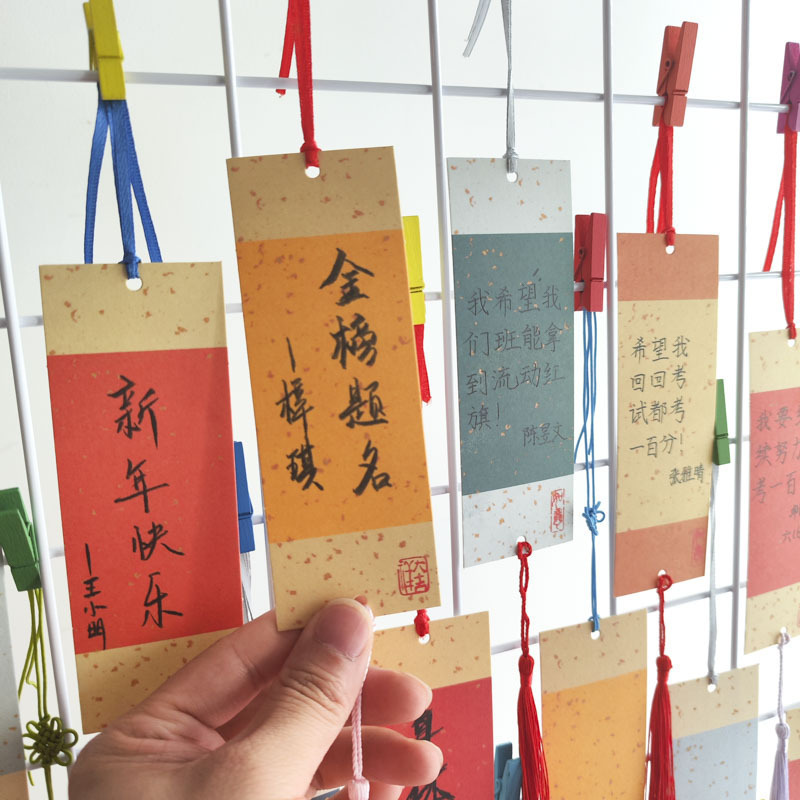 新年快乐
—王小明
金榜题名
—梓琪
我希望我
们班能拿
到流动红
旗！
陈昱文
希望我
回回考
试都考
一百分！
张雅晴
我要
续努力
考一百